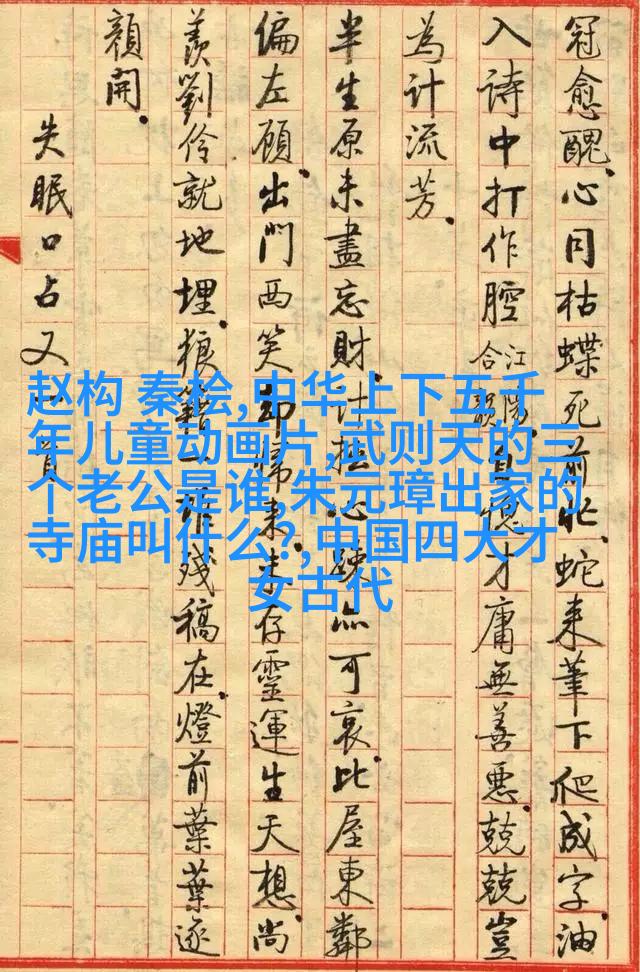 冠愈醜。心同枯蝶死前 蛇来筆下爬成字、油
入詩中打作腔 江陽合韻 自愧才庸無善惡、兢兢豈
為計流芳。
半生原未盡忘財、計拙心疎亦可哀。比屋東鄰
偏左顧、出門西笑却歸来。未存靈運生天想、尚
羨劉伶就地埋。狼籍一堆殘稿在、燈前葉葉逐
顏開。
失眠口占又一首
赵构 秦桧,中华上下五千
年儿童动画片,武则天的三
个老公是谁,朱元璋出家的
寺庙叫什么?,中国四大才
女古代